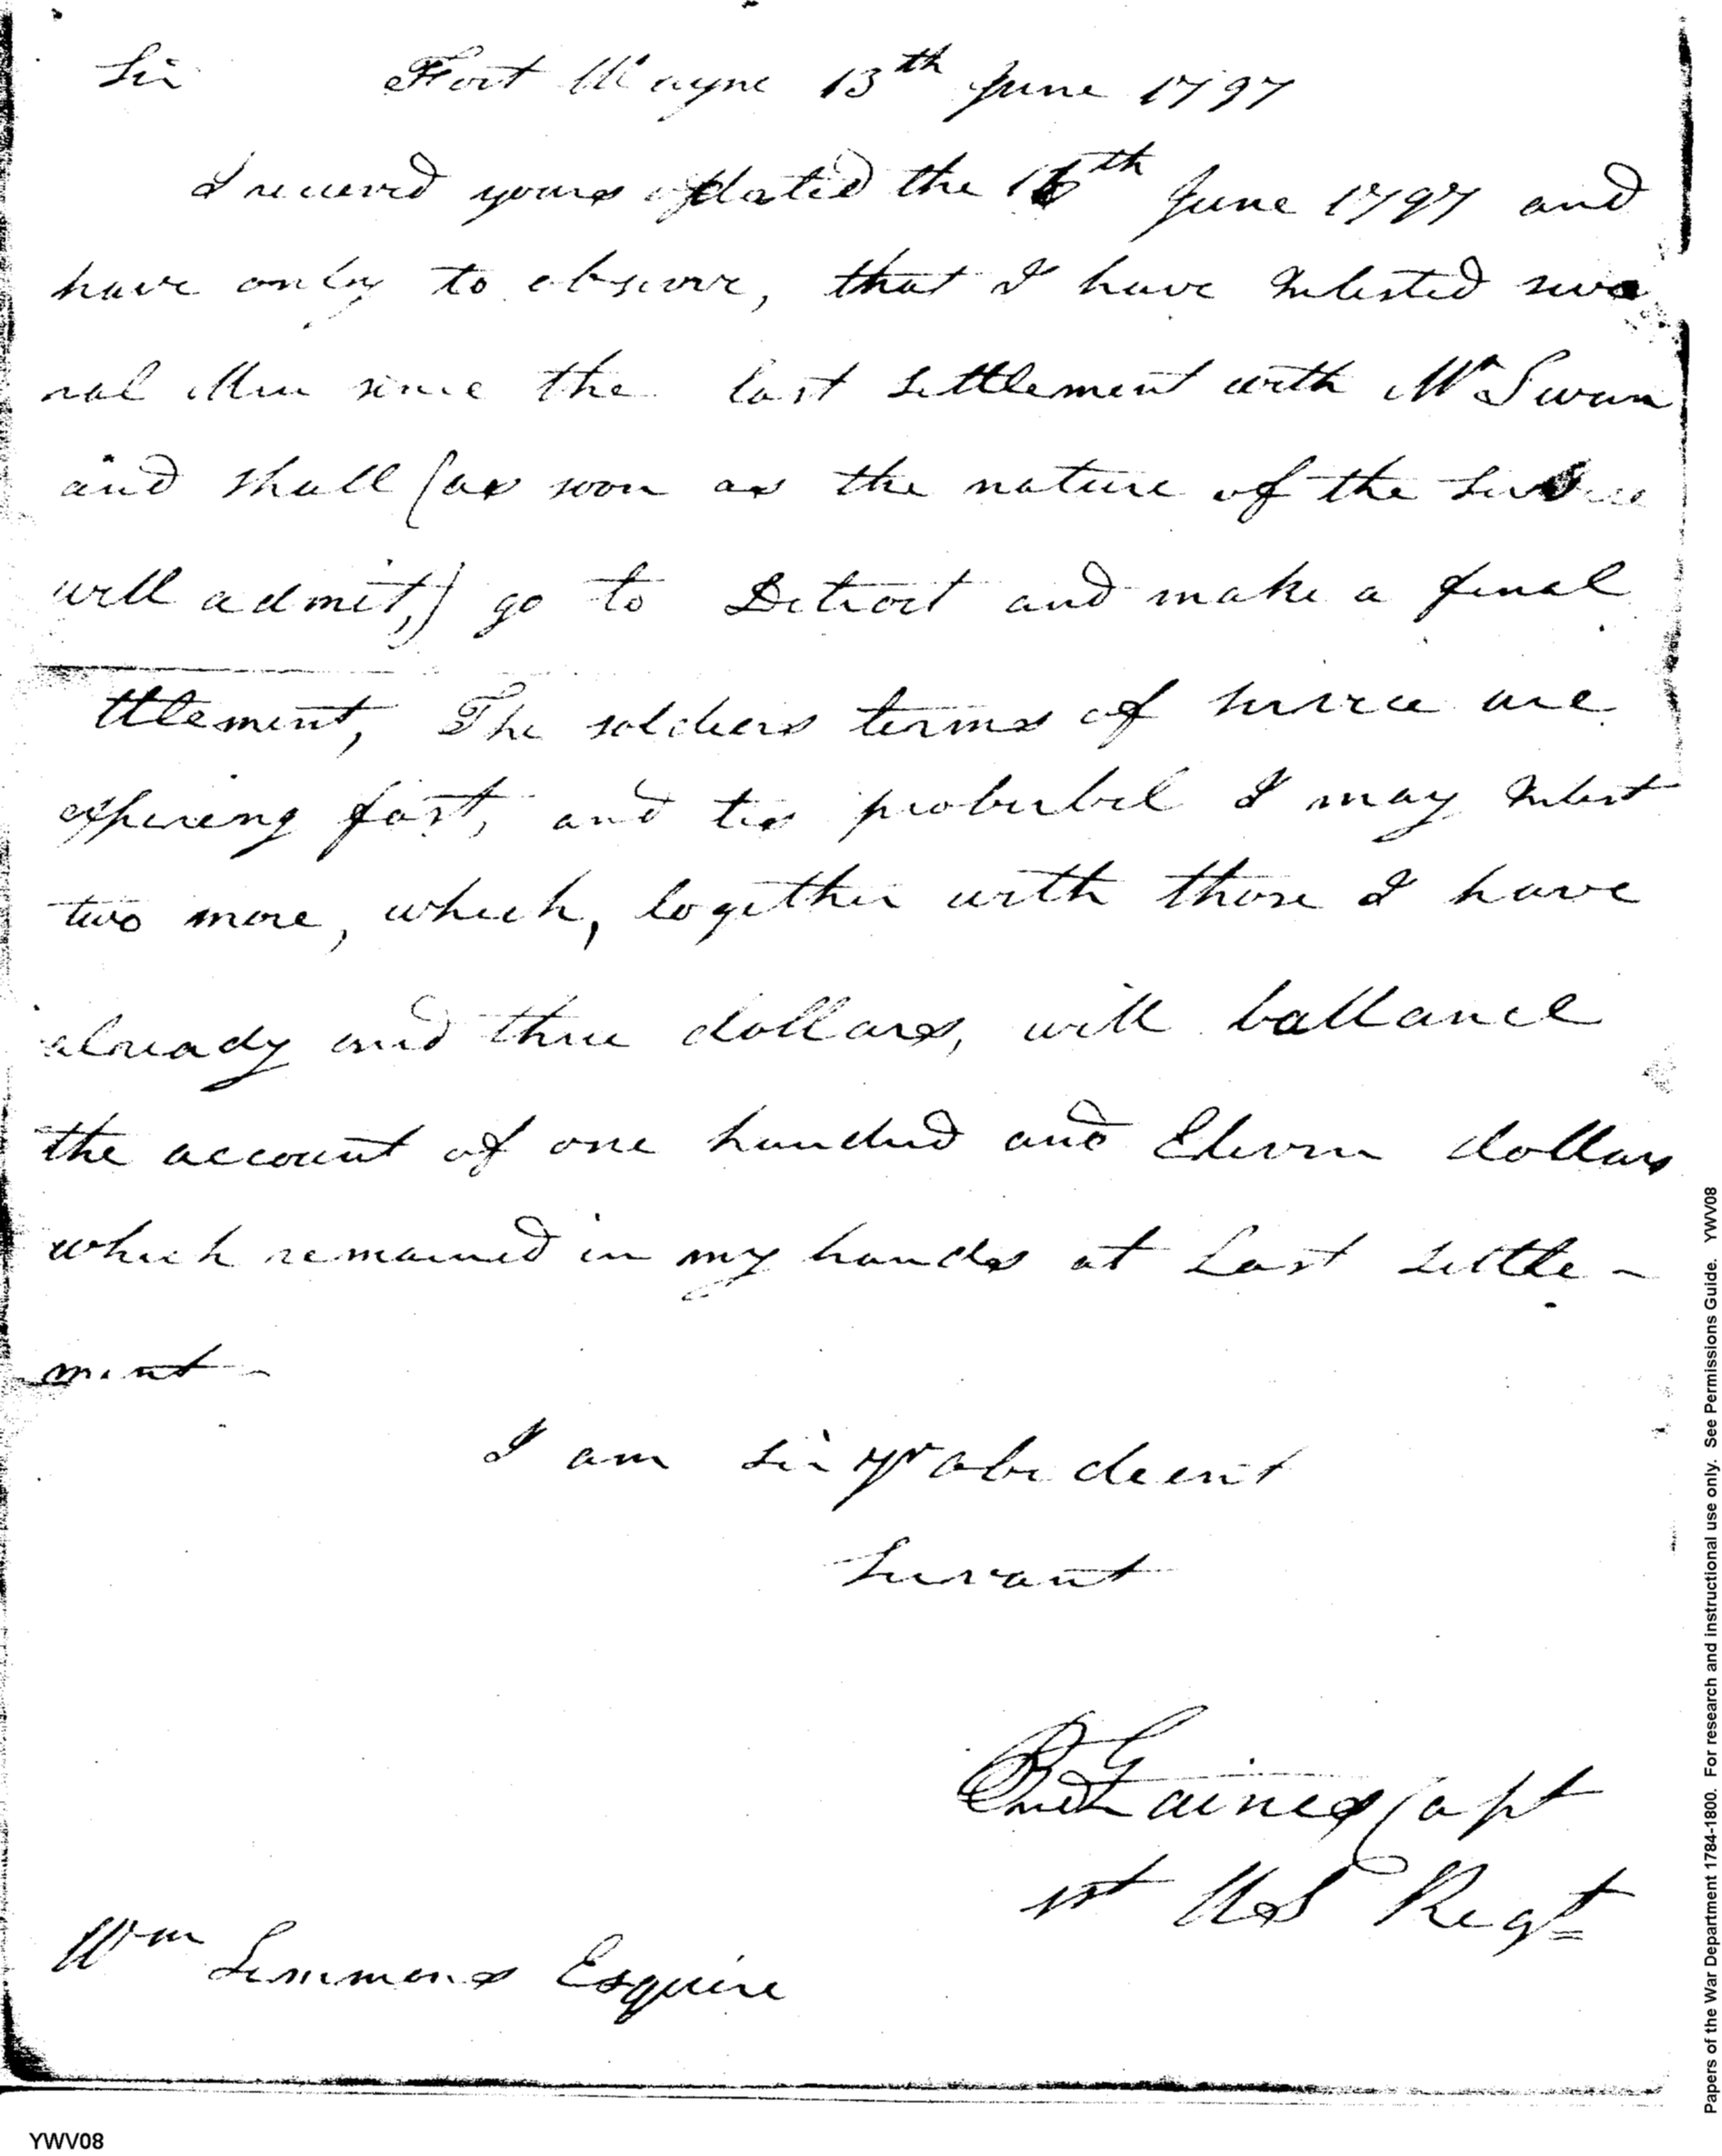 Sir Fort Wayne 13th June 1797
I receved yours dated the June 1797 and
have only to observe, that I have Inlisted seve
ral Men since the last settlement with Mr Swan
and shall (as soon as the nature of the service
will admit,) go to Detroit and make a final
ttlement, The soldiers terms of service are
expireing fast, and tis proberbel I may Inlist
two more, which, together with those I have
already and three dollars, will ballance
the account of one hundred and Eleven dollars
which remained in my hands at Last settle-
ment-
I am sir yr obedeent
Servant
Gaines Capt
1st US Regt
Wm Simmons Esquire
YWV08
Papers of the War Department 1784-1800. For research and instructional use only. See Permissions Guide. YWV08